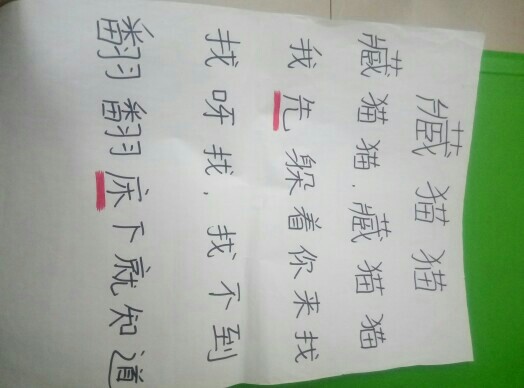 藏猫猫
藏猫猫，藏猫猫
我先躲着你来找
找呀找，找不到
翻翻床下就知道